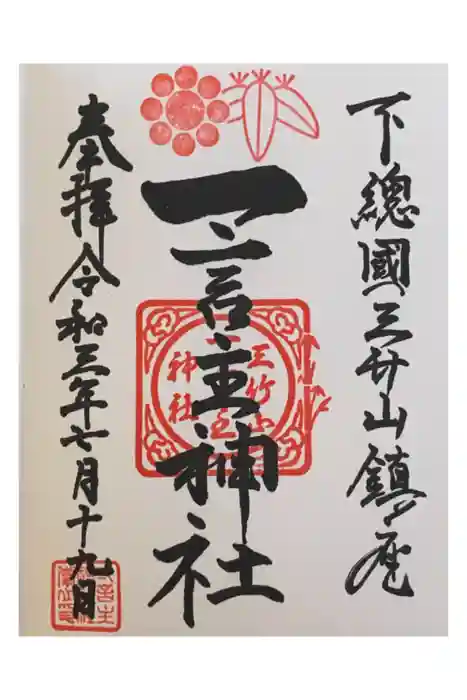 下總國三竹山鎮座
一言主神社
三竹山
神社
奉拝令和三年七月十九日